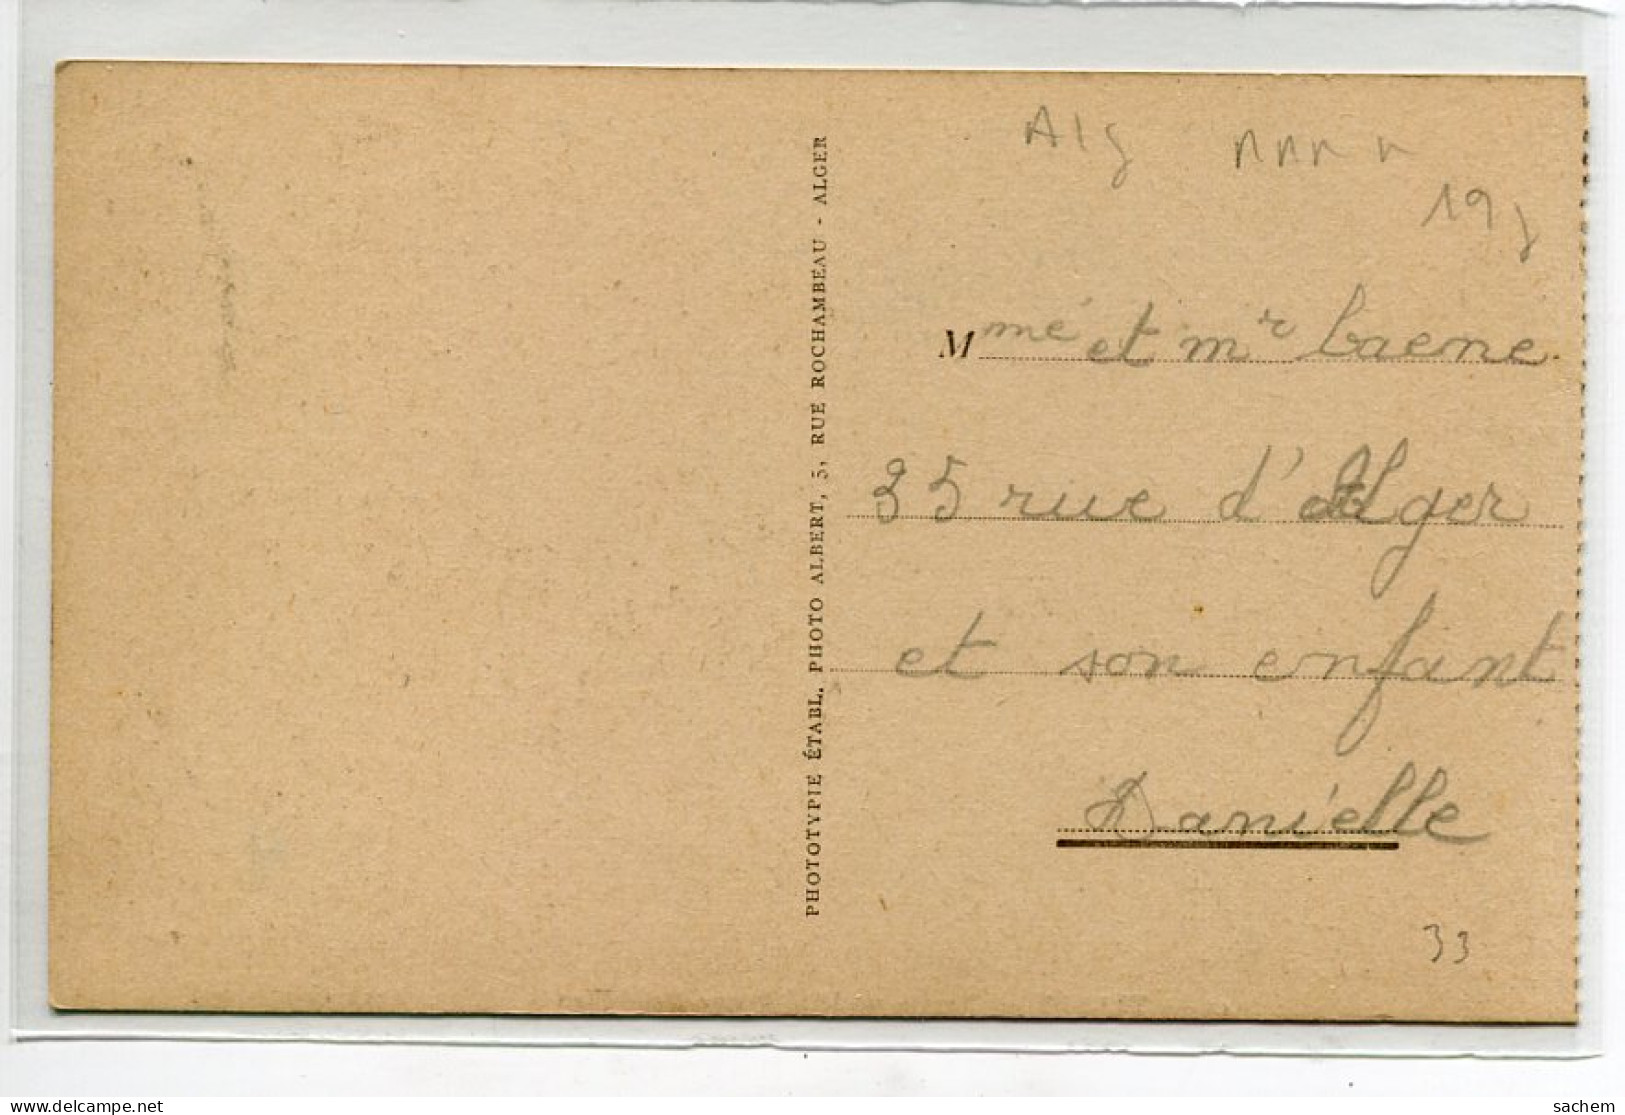 Alg
19
PHOTOTYPIE ÉTABL. PHOTO ALBERT, 5, RUE ROCHAMBEAU - ALGER
Mme et mr
35 rue d'Alger
et son enfant
Danielle
33
delcampe.net
sachem